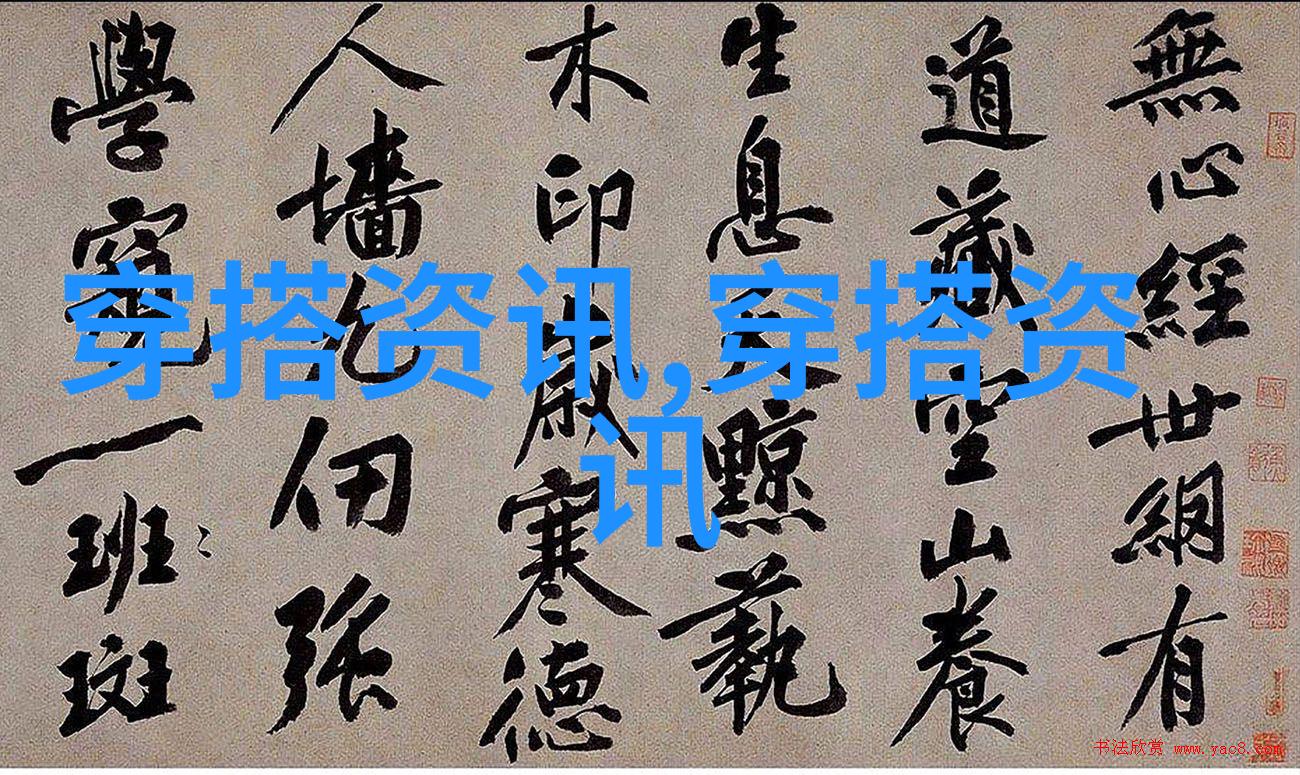 穿搭资讯,穿搭资
讯
無心經世網有
道藏空山養
生息天黥蓺
木印歲寒德
人墻九仞張
學窺一班斑
书法欣赏 www.yac8.com